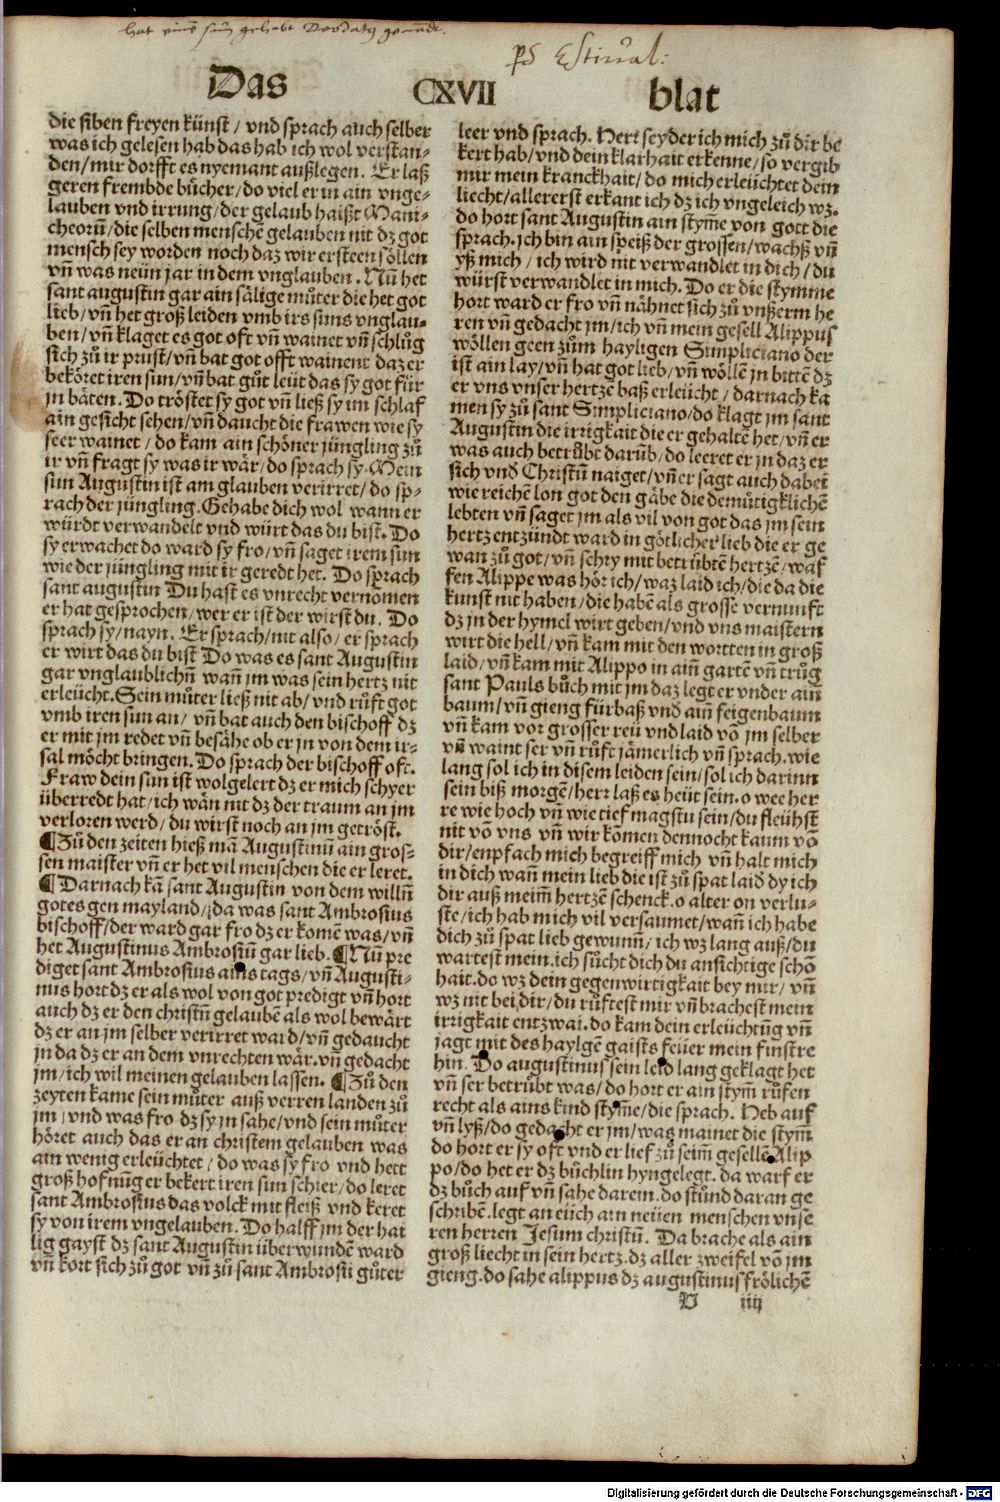 hat eine sun gehabt Deodatus genandt.
Das CXVII blat
die siben freyen künst / vnd sprach auch selber
was ich gelesen hab das hab ich wol verstan-
den / mir dorfft es nyemant außlegen. Er laß
geren frembde bücher / do viel er in ain vnge-
lauben vnd irrung / der gelaub haißt Mani-
cheorū / die selben menschē gelauben nit dz got
mensch sey worden noch daz wir ersteen söllen
vn̄ was neün jar in dem vnglauben. Nū het
sant augustin gar ain sälige můter die het got
lieb / vn̄ het groß leiden vmb irs suns vnglau-
ben / vn̄ klaget es got oft vn̄ wainet vn̄ schlůg
sich zů ir prust / vn̄ bat got offt wainent daz er
beköret iren sun / vn̄ bat gůt leüt das sy got für
jn bäten. Do tröstet sy got vn̄ ließ sy im schlaf
ain gesicht sehen / vn̄ daucht die frawen wie sy
seer wainet / do kam ain schöner jüngling zů
ir vn̄ fragt sy was ir wär / do sprach sy. Mein
sun Augustin ist am glauben verirret / do sp-
rach der jüngling. Gehabe dich wol wann er
würdt verwandelt vnd würt das du bist. Do
sy erwachet do ward sy fro / vn̄ saget irem sun
wie der jüngling mit ir geredt het. Do sprach
sant augustin Du hast es vnrecht vernomen
er hat gesprochen / wer er ist der wirst du. Do
sprach sy / nayn. Er sprach / nit also / er sprach
er wirt das du bist Do was es sant Augustin
gar vnglaublichn̄ wan̄ jm was sein hertz nit
erleücht. Sein můter ließ nit ab / vnd růft got
vmb iren sun an / vn̄ bat auch den bischoff dz
er mit jm redet vn̄ besähe ob er jn von dem ir-
sal möcht bringen. Do sprach der bischoff oft.
Fraw dein sun ist wolgelert dz er mich schyer
überredt hat / ich wän nit dz der traum an jm
verloren werd / du wirst noch an jm getröst.
¶Zů den zeiten hieß mā Augustinū ain gros-
sen maister vn̄ er het vil menschen die er leret.
¶Darnach kā sant Augustin von dem willn̄
gotes gen mayland / da was sant Ambrosius
bischoff / der ward gar fro dz er komē was / vn̄
het Augustinus Ambrosiū gar lieb. ¶Nū pre
diget sant Ambrosius ains tags / vn̄ Augusti-
nus hort dz er als wol von got predigt vn̄ hort
auch dz er den christn̄ gelaubē als wol bewärt
dz er an jm selber verirret ward / vn̄ gedaucht
jn da dz er an dem vnrechten wär. vn̄ gedacht
jm / ich wil meinen gelauben lassen. ¶Zů den
zeyten kame sein můter auß verren landen zů
jm / vnd was fro dz sy jn sahe / vnd sein můter
höret auch das er an christem gelauben was
ain wenig erleüchtet / do was sy fro vnd hett
groß hofnūg er bekert iren sun schier / do leret
sant Ambrosius das volck mit fleiß vnd keret
sy von irem vngelauben. Do halff jm der hai
lig gayst dz sant Augustin überwundē ward
vn̄ kort sich zů got vn̄ zů sant Ambrosii gůter
leer vnd sprach. Herr seyder ich mich zů dir be
kert hab / vnd dein klarhait erkenne / so vergib
mir mein kranckhait / do mich erleüchtet dein
liecht / allererst erkant ich dz ich vngeleich wz.
do hort sant Augustin ain stym̄e von gott die
sprach. ich bin ain speiß der grossen / wachß vn̄
yß mich / ich wird nit verwandlet in dich / du
würst verwandlet in mich. Do er die stymme
hort ward er fro vn̄ nähnet sich zů vnßerm he
ren vn̄ gedacht jm / ich vn̄ mein gesell Alippus
wöllen geen zům hayligen Simpliciano der
ist ain lay / vn̄ hat got lieb / vn̄ wöllē jn bittē dz
er vns vnser hertzē baß erleücht / darnach ka
men sy zů sant Simpliciano / do klagt jm sant
Augustin die irrigkait die er gehaltē het / vn̄ er
was auch betrůbt darūb / do leeret er jn daz er
sich vnd Christū naiget / vn̄ er sagt auch dabei
wie reichē lon got den gäbe die demůtigklichē
lebten vn̄ saget jm als vil von got das jm sein
hertz entzündt ward in götlicher lieb die er ge
wan zů got / vn̄ schry mit betrübtē hertzē / waf
fen Alippe was hör ich / waz laid ich / die da die
kunst nit haben / die habē als grosse vernunft
dz jn der hymel wirt geben / vnd vns maistern
wirt die hell / vn̄ kam mit den wortten in groß
laid / vn̄ kam mit Alippo in ain̄ gartē vn̄ trůg
sant Pauls bůch mit jm daz legt er vnder ain̄
baum / vn̄ gieng fürbaß vnd ain̄ feigenbaum
vn̄ kam vor grosser reü vnd laid vō jm selber
vn̄ waint ser vn̄ růft jämerlich vn̄ sprach. wie
lang sol ich in disem leiden sein / sol ich darinn
sein biß morgē / herr laß es heüt sein. o wee her
re wie hoch vn̄ wie tief magstu sein / du fleühst
nit vō vns vn̄ wir kōmen dennocht kaum vō
dir / enpfach mich begreiff mich vn̄ halt mich
in dich wan̄ mein lieb die ist zů spat laid dy ich
dir auß meim̄ hertzē schenck. o alter on verlu-
ste / ich hab mich vil versaumet / wan̄ ich habe
dich zů spat lieb gewunn̄ / ich wz lang auß / du
wartest mein. ich sůcht dich du ansichtige schö
hait. do wz dein gegenwirtigkait bey mir / vn̄
wz nit bei dir / du růftest mir vn̄ brachest mein
irrigkait entzwai. do kam dein erleüchtūg vn̄
jagt mit des haylgē gaists feüer mein finstre
hin. Do augustinus sein leid lang geklagt het
vn̄ ser betrůbt was / do hort er ain stym̄ růfen
recht als ains kind stym̄e / die sprach. Heb auf
vn̄ lyß / do gedacht er jm / was mainet die stym̄
do hort er sy oft vnd er lief zů seim̄ gesellē Alip
po / do het er dz bůchlin hyngelegt. da warf er
dz bůch auf vn̄ sahe darein. do stůnd daran ge
schribē. legt an eüch ain neüen menschen vnse
ren herren Jesum christū. Da brache als ain
groß liecht in sein hertz. dz aller zweifel vō jm
gieng. do sahe alippus dz augustinus frölichē
V iiij
Digitalisierung gefördert durch die Deutsche Forschungsgemeinschaft - DFG